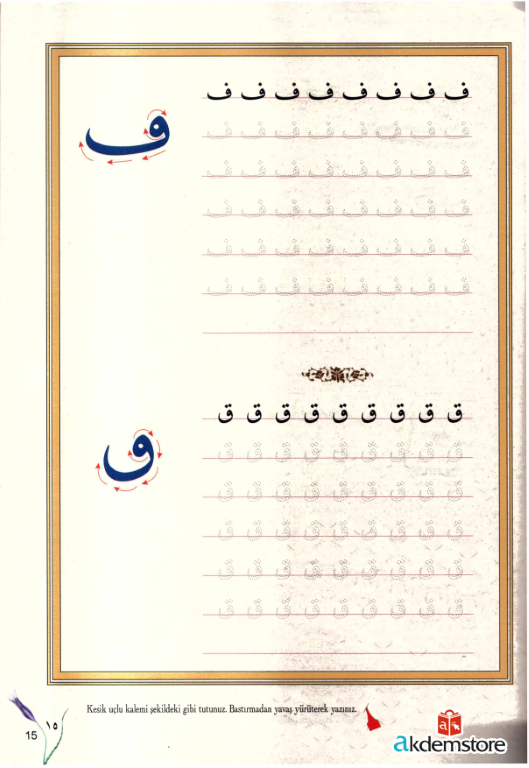 ف ف ف ف ف ف ف ف
ڡ
ف ف ف ف ف ف ف ف
ف ف ف ف ف ف ف ف
ف ف ف ف ف ف ف ف
ف ف ف ف ف ف ف ف
ف ف ف ف ف ف ف ف
ق ق ق ق ق ق ق ق ق
ٯ
ق ق ق ق ق ق ق ق ق
ق ق ق ق ق ق ق ق ق
ق ق ق ق ق ق ق ق ق
ق ق ق ق ق ق ق ق ق
ق ق ق ق ق ق ق ق ق
Kesik uçlu kalemi şekildeki gibi tutunuz. Bastırmadan yavaş yürüterek yazınız.
١٥
15
a
akdemstore